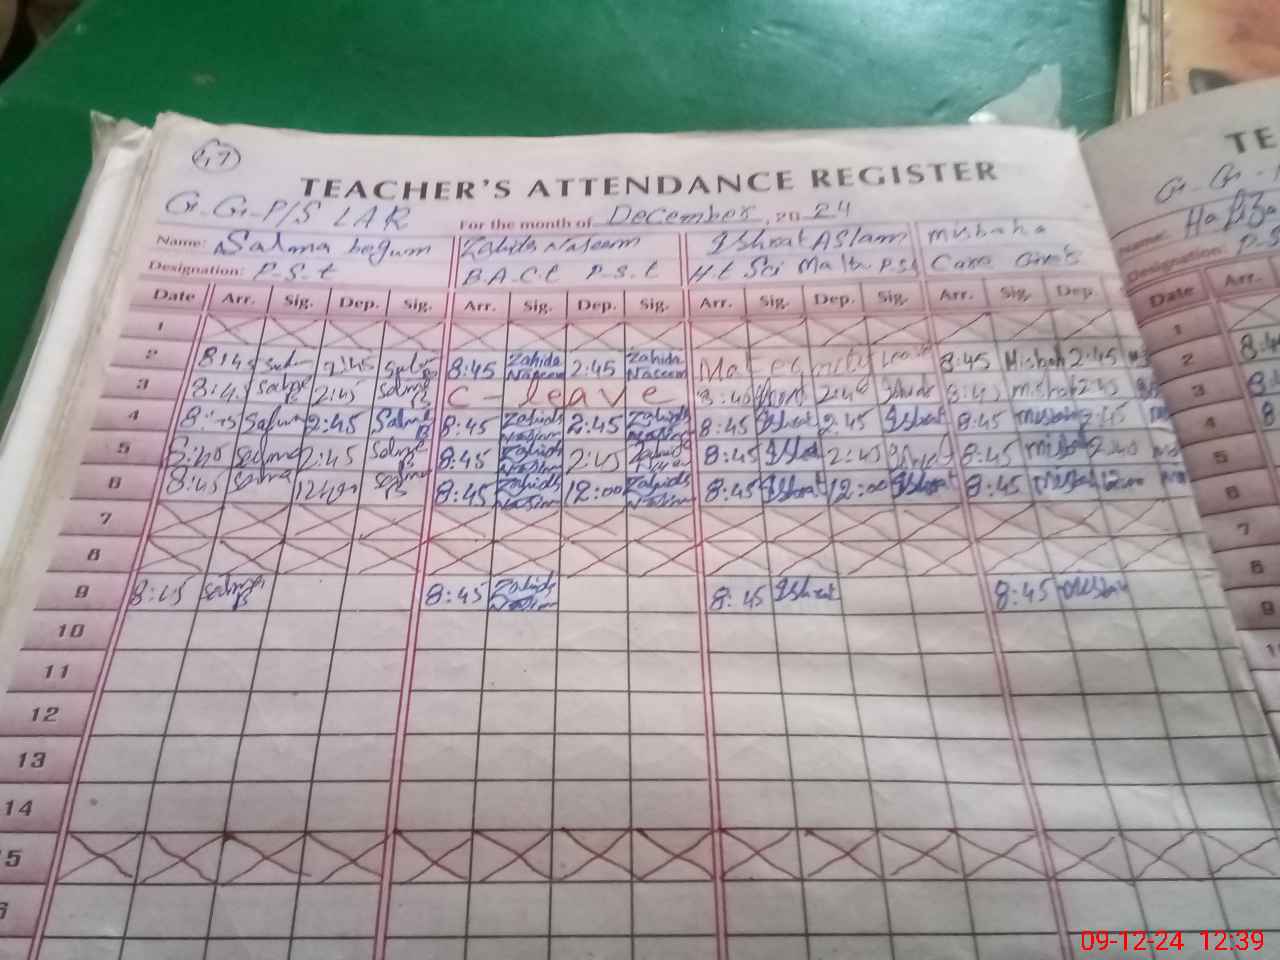 TEACHER'S ATTENDANCE REGISTER
G.G.P/S LAR For the month of December, 20 24
Name: Salma begum Zahida Naseem Ishrat Aslam misbaha
Designation: P.S.t B.A C.t P.S.t Care Giver
Date Arr. Sig. Dep. Sig. Arr. Sig. Dep. Sig. Arr. Sig. Dep. Sig. Arr. Sig. Dep.
1
2 8:45 2:45 8:45 Zahida Naseem 2:45 Zahida Naseem Maternity Leave 8:45 Misbah 2:45
3 8:45 Salma 2:45 Salma B C-leave 8:45 misbah 2:45
4 Salma 2:45 Salma B 8:45 Zahida Nasim 2:45 Zahida Nasim 8:45 Ishrat 2:45 Ishrat 8:45 misbah 2:45
5 Salma 2:45 Salma B 8:45 Zahida Nasim 2:45 Zahida 8:45 Ishrat 2:45 8:45 misbah
6 8:45 Salma Salma B 8:45 Zahida Nasim 12:00 Zahida Nasim 8:45 Ishrat 12:00 Ishrat 8:45 misbah 12:00
7
8
9 8:45 Salma B 8:45 Zahida Nasim 8:45 Ishrat 8:45 misbah
10
11
12
13
14
5
6
TE
G.G.
Name: Hafiza
Designation: P.S
Date Arr.
1
2
3
4
5
6
7
8
9
09-12-24 12:39